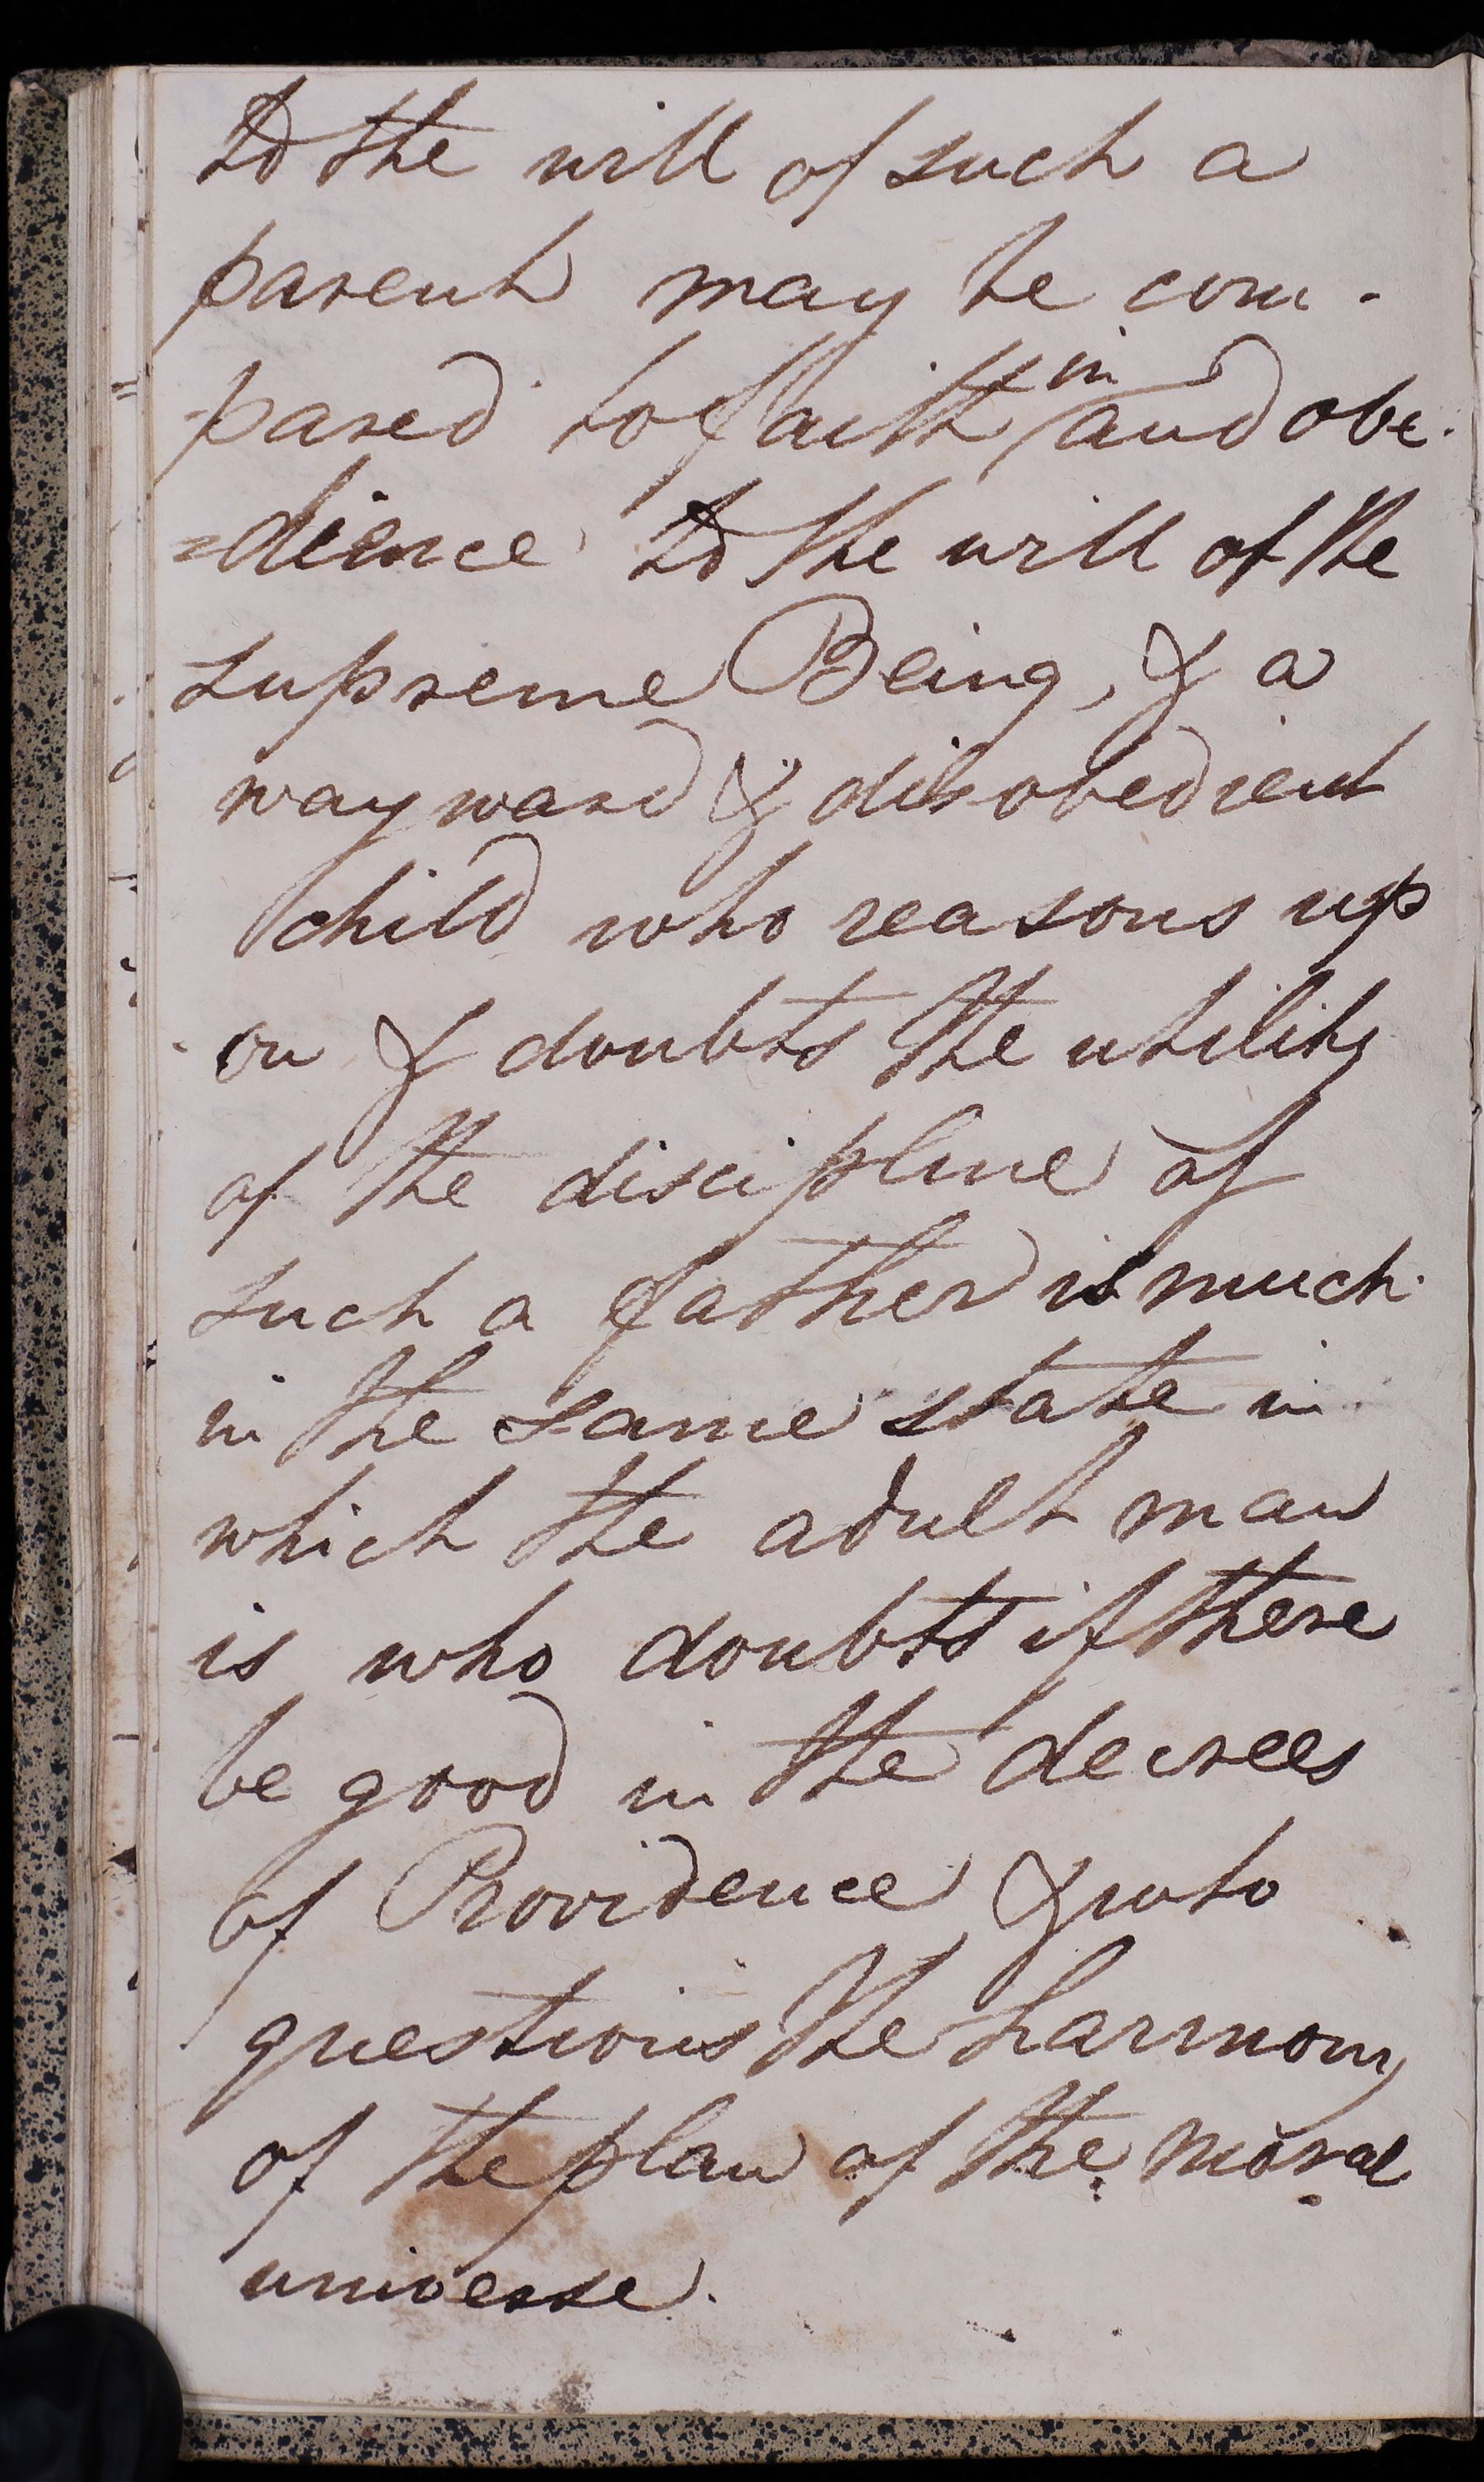 to the will of such a
parent may be com-
pared to faith in and obe-
=dience to the will of the
supreme Being, & a
wayward & disobedient
child who reasons up
on & doubts the utility
of the discipline of
such a father is much
in the same state in
which the adult man
is who doubts if there
be good in the decrees
of Providence & who
questions the harmony
of the plan of the moral
universe.